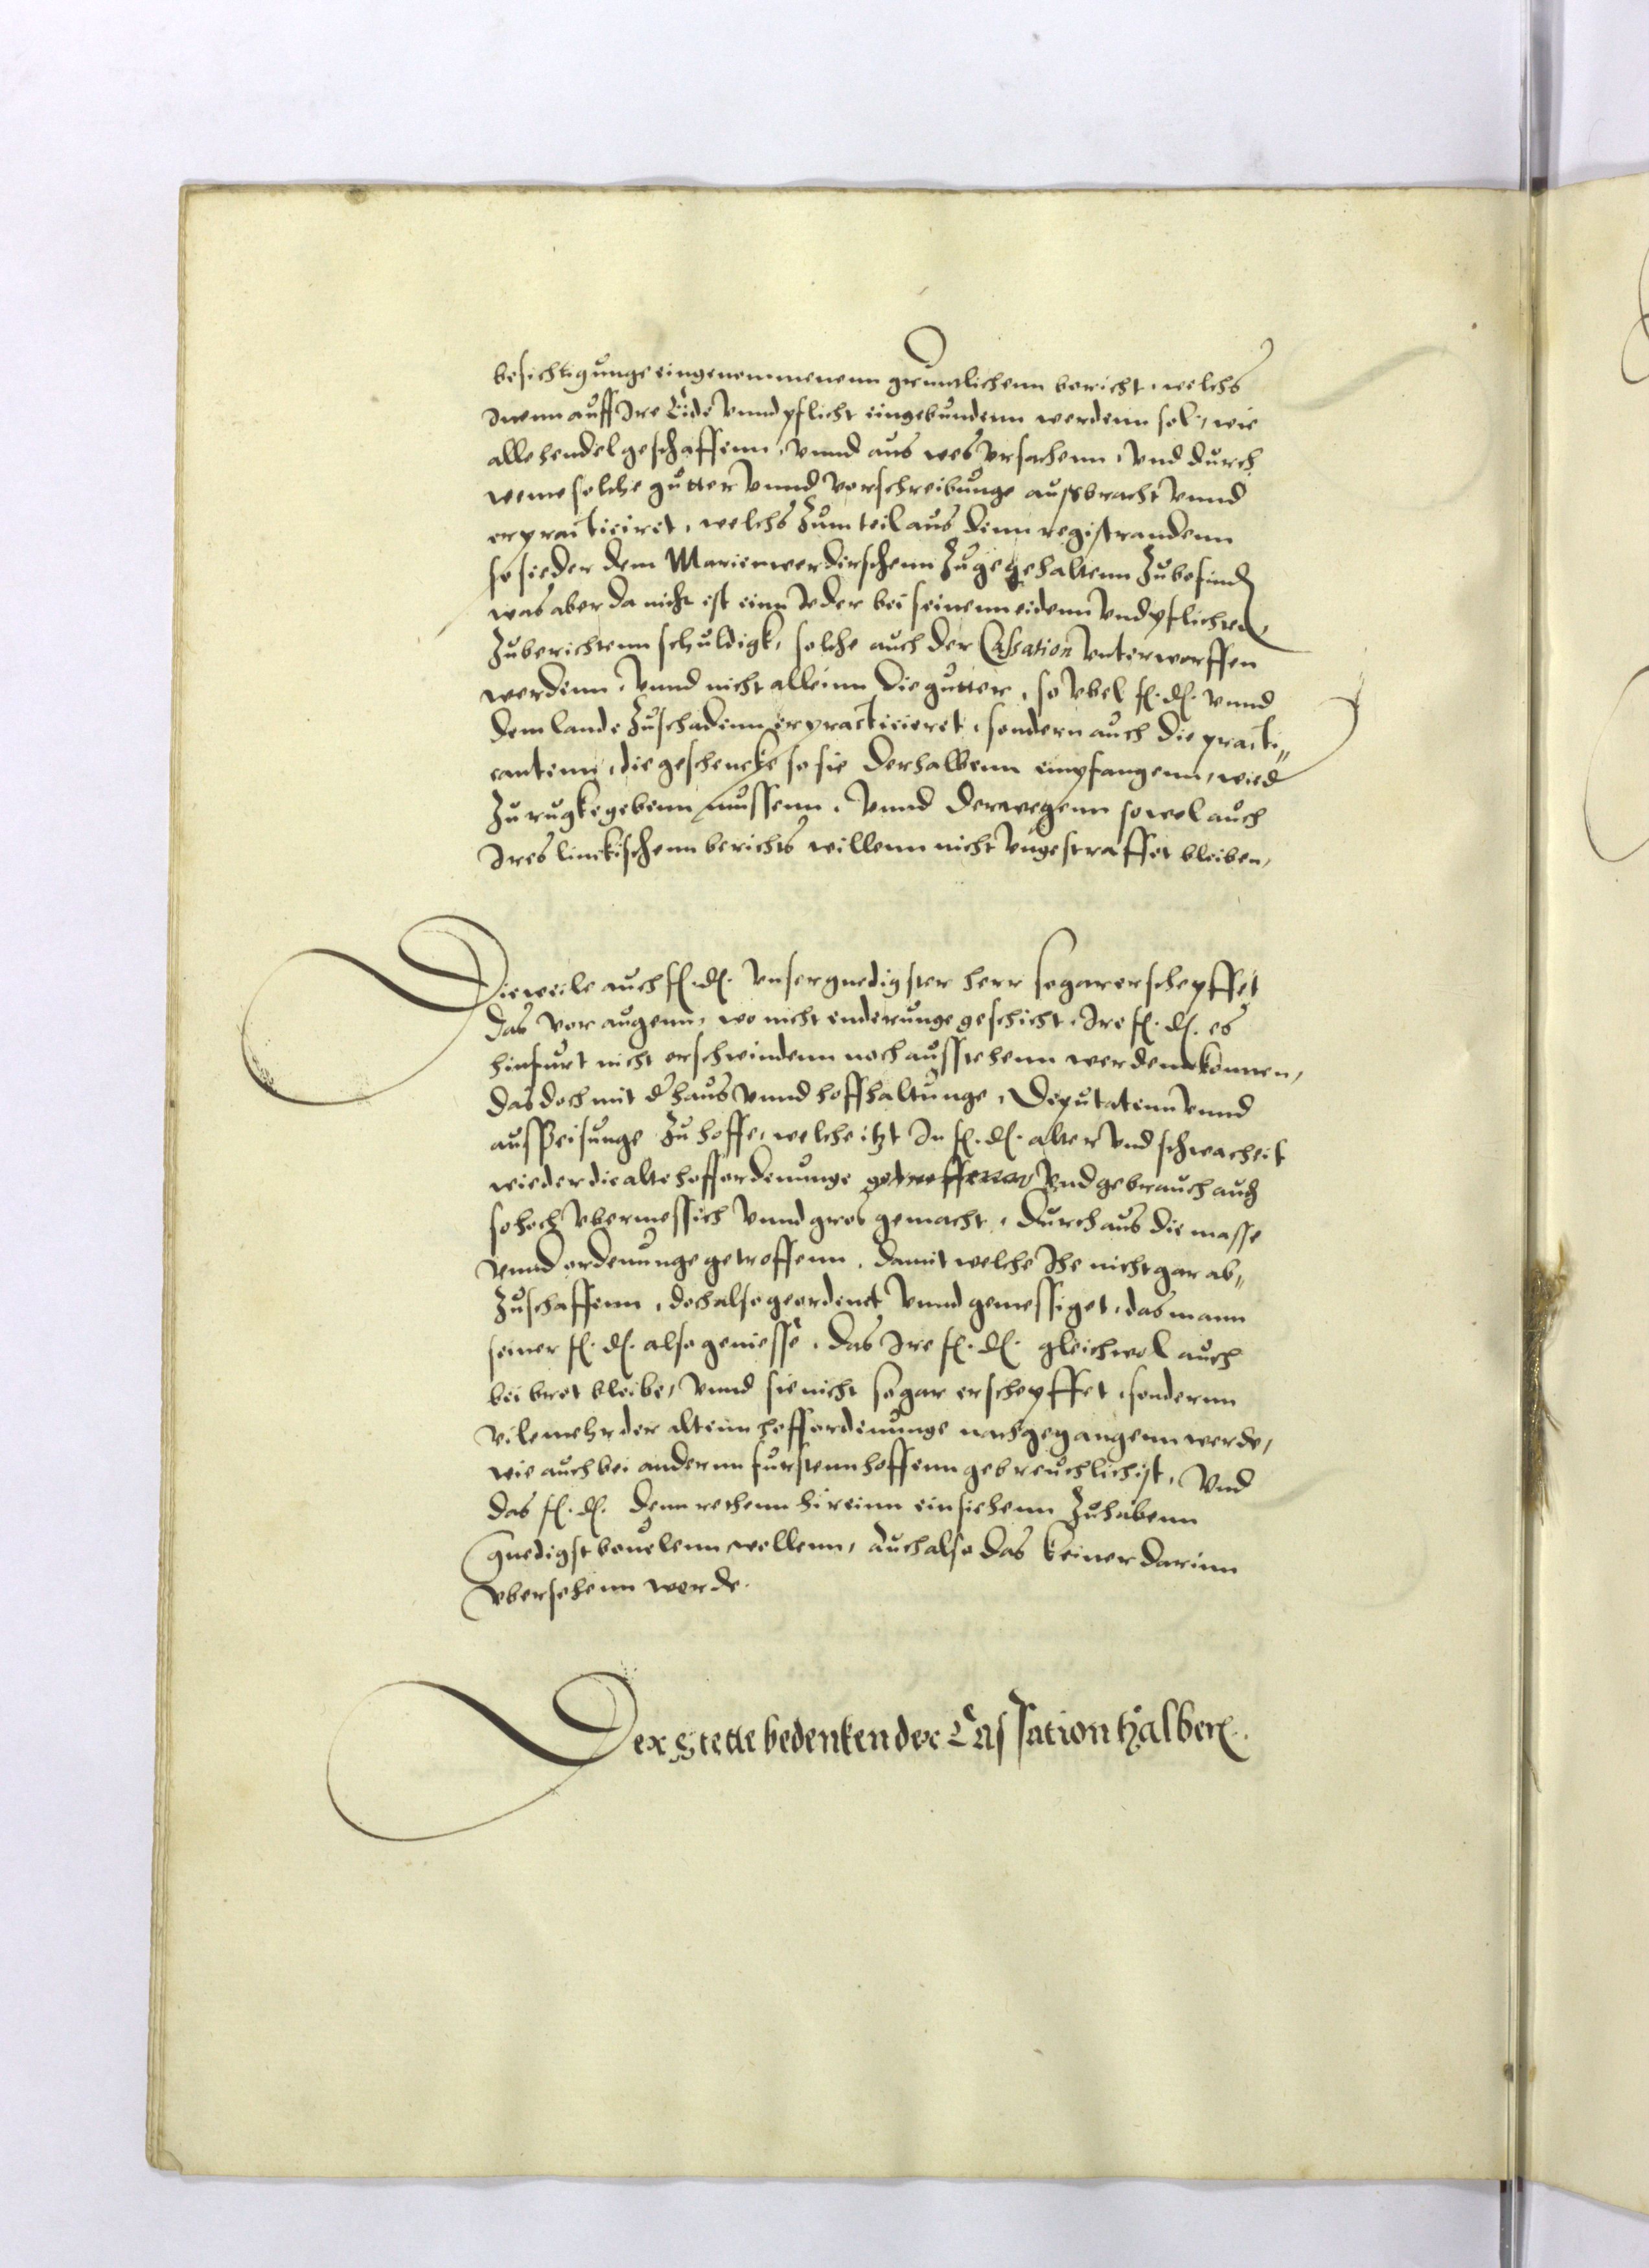 besichtigunge eingenommenenn gruntlichenn bericht, welchs
Inenn auff Ire Eide vnnd pflicht eingebundenn werdenn sol, wie
alle hendel geschaffenn, vnnd aus wes vrsachenn, vnd durch
weme solche gutter vnnd vorschreibunge außbracht vnnd
erpracticiret, welchs zum teil aus denn registrandenn
so sieder dem Marienwerdirschenn zuge gehaltenn zubefinden
was aber da nicht ist einn Jeder bei seinenn eidenn vnd pflichten,
zuberichtenn schuldigk, solche auch der Cassation vnterworffen
werdenn, vnnd nicht alleinn die gutter, so vbel f. d. vnnd
dem lande zuschadenn erpracticieret, sondern auch die practi„
cantenn, die geschencke so sie derhalbenn empfangenn, wied
zurugke gebenn mussenn, vnnd derwegenn sowol auch
Ires linckischenn berichts willenn nicht vngestraffet bleiben,
Dieweile auch f. d. vnser gnedigster herr sogar erschepffet
das vor augenn, wo nicht enderunge geschicht, Ire f. d. es
hinfurt nicht erschwindenn noch ausstehenn werdenn können,
das doch mit d haus vnnd hoffhaltunge, Deputatenn vnnd
ausspeisunge zu hoffe, welche itzt In f. d. alter vnd schwacheit
wieder die alte hoffordenunge getroffenn vnd gebrauch auch
so hoch vbermessich vnnd gros gemacht, durchaus die masse
vnnd ordenunge getroffenn, damit welche Jhe nicht gar ab„
zuschaffenn, doch also geordenet vnnd gemessiget, das mann
seiner f. d. also geniesse, das Ire f. d. gleichwol auch
bei bret bleibe, vnnd sie nicht sogar erschepffet, sondernn
vilemehr der altenn hoffordenunge nachgegangenn werde,
wie auch bei andernn furstenn hoffenn gebreuchlich ist, vnd
das f. d. denn rethenn hireinn einsehenn zuhabenn
gnedigst beuelenn wollenn, auch also das keiner darinn
vbersehenn werde.
Der Stette bedenken der Cassation halben.